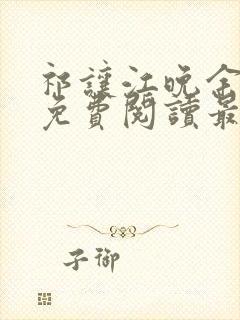 祁讓江晚余
免費閱讀最
子御